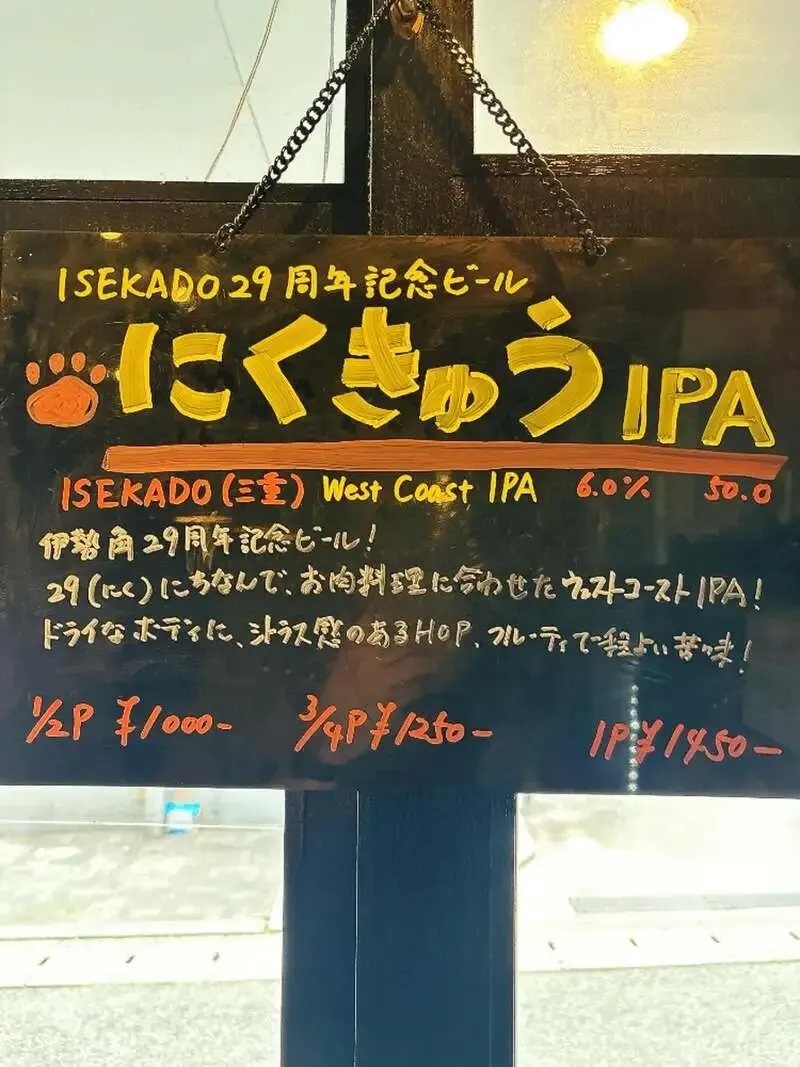 ISEKADO 29周年記念ビール
にくきゅう IPA
ISEKADO (三重) West Coast IPA 6.0% 50.0
伊勢角29周年記念ビール!
29(にく)にちなんで、お肉料理に合わせたウエストコーストIPA!
ドライなボディに、シトラス感のあるHOP、フルーティで程よい苦味!
1/2P ¥1000- 3/4P ¥1250- 1P ¥1450-